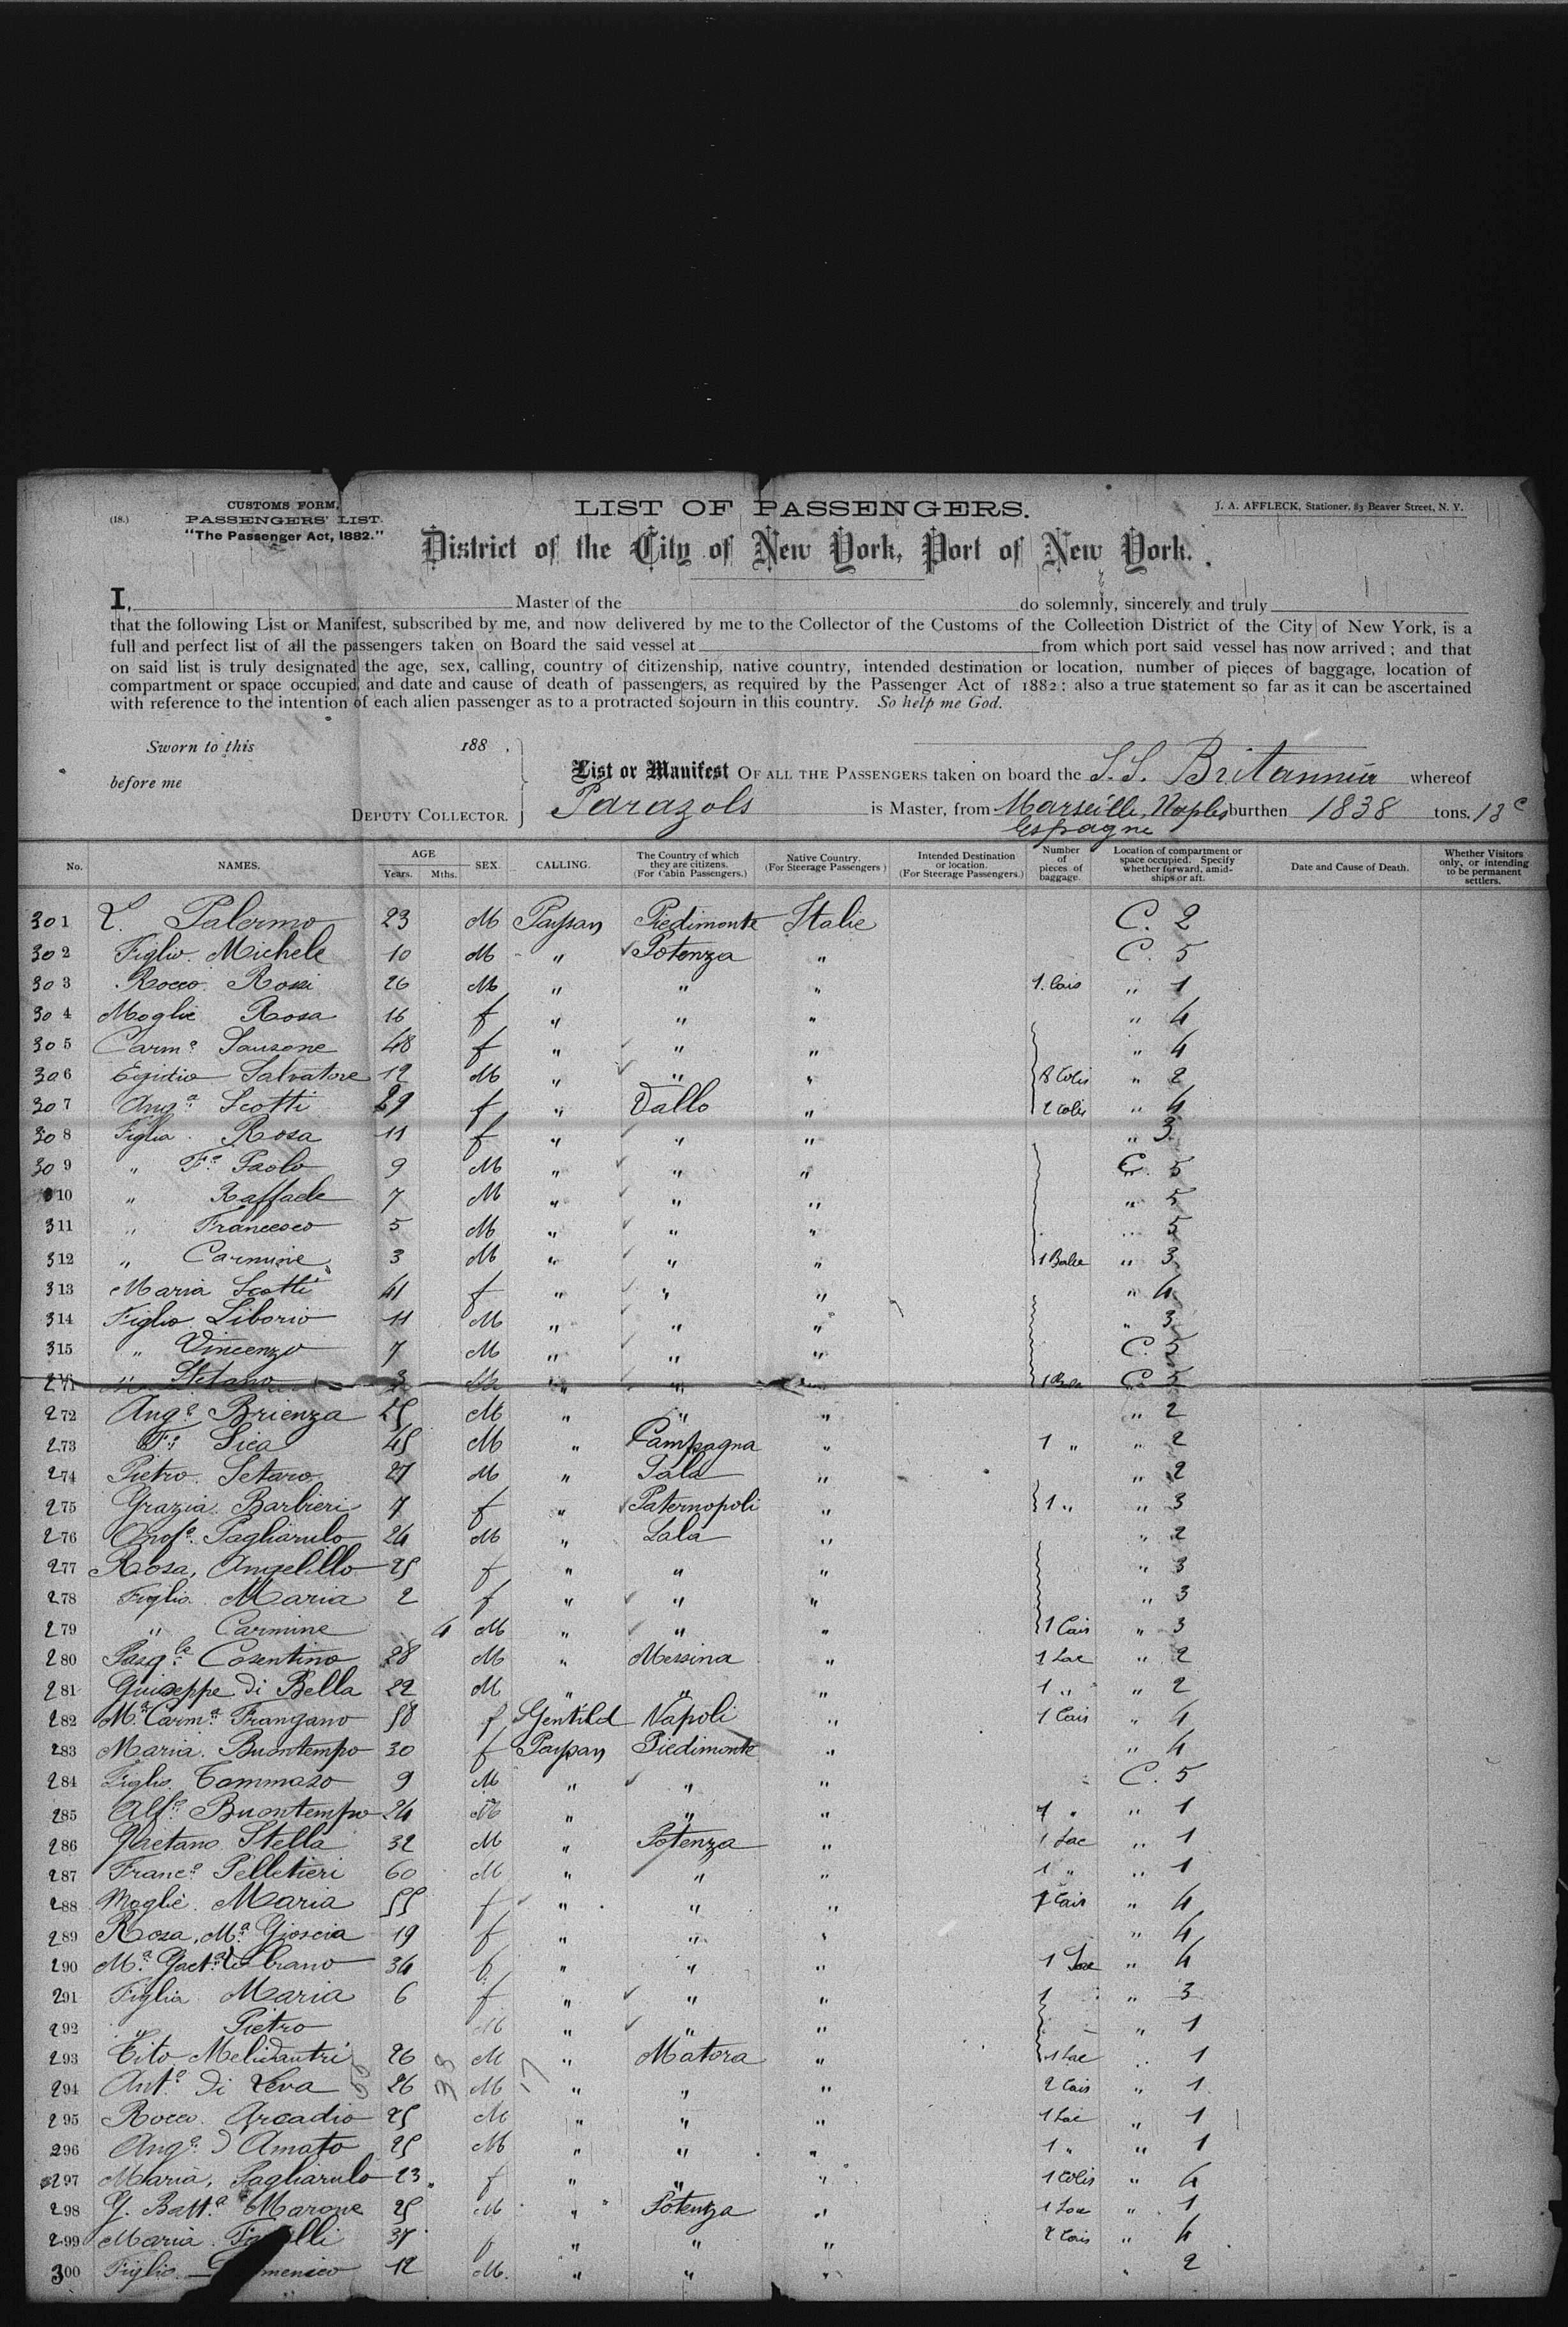 (18.)
CUSTOMS FORM,
PASSENGERS' LIST.
"The Passenger Act, 1882."
LIST OF PASSENGERS.
J. A. AFFLECK, Stationer, 83 Beaver Street, N. Y.
District of the City of New York, Port of New York.
I, Master of the do solemnly, sincerely and truly
that the following List or Manifest, subscribed by me, and now delivered by me to the Collector of the Customs of the Collection District of the City of New York, is a
full and perfect list of all the passengers taken on Board the said vessel at from which port said vessel has now arrived; and that
on said list is truly designated the age, sex, calling, country of citizenship, native country, intended destination or location, number of pieces of baggage, location of
compartment or space occupied, and date and cause of death of passengers, as required by the Passenger Act of 1882: also a true statement so far as it can be ascertained
with reference to the intention of each alien passenger as to a protracted sojourn in this country. So help me God.
Sworn to this 188 .
before me
DEPUTY COLLECTOR.
List or Manifest OF ALL THE PASSENGERS taken on board the S.S. Britannia whereof
Parazols is Master, from Marseille, Naples burthen 1838 tons. 13 c
Espagne
No. NAMES. AGE Years. Mths. SEX. CALLING. The Country of which they are citizens. (For Cabin Passengers.) Native Country. (For Steerage Passengers) Intended Destination or location. (For Steerage Passengers.) Number of pieces of baggage. Location of compartment or space occupied. Specify whether forward, amidships or aft. Date and Cause of Death. Whether Visitors only, or intending to be permanent settlers.
301 L. Palermo 23 M Paysan Piedimonte Italie C. 2
302 Figlio Michele 10 M " Potenza " C. 5
303 Rocco Rossi 26 M " " " 1 Cais " 1
304 Moglie Rosa 16 f " " " " 4
305 Carm.a Sansone 48 f " " " " 4
306 Egidio Salvatore 12 M " " " 3 Colis " 2
307 Ang.a Scotti 29 f " Vallo " 2 Colis " 4
308 Figlia Rosa 11 f " " " " 3
309 " F.o Paolo 9 M " " " C. 5
310 " Raffaele 7 M " " " " 5
311 " Francesco 5 M " " " " 5
312 " Carmine 3 M " " " 1 Balle " 3
313 Maria Scotti 41 f " " " " 4
314 Figlio Liborio 11 M " " " " 3
315 " Vincenzo 7 M " " " C. 5
271 Stefano 3 " " C. 5
272 Ang.o Brienza 25 M " " " " 2
273 F.o Sica 45 M " Campagna " 1 " " 2
274 Pietro Setaro 27 M " Sala " " 2
275 Grazia Barbieri 7 f " Paternopoli " 1 " " 3
276 Onof.o Pagliarulo 24 M " Sala " " 2
277 Rosa, Angelillo 25 f " " " " 3
278 Figlio Maria 2 f " " " " 3
279 " Carmine 4 M " " " 1 Cais " 3
280 Pasq.le Cosentino 28 M " Messina " 1 Sac " 2
281 Giuseppe di Bella 22 M " " " 1 " " 2
282 M.a Carm.a Frangano 58 f Gentild Napoli " 1 Cais " 4
283 Maria Buontempo 30 f Paysan Piedimonte " " 4
284 Figlio Tommaso 9 M " " " C. 5
285 Alf.o Buontempo 24 M " " " 1 " " 1
286 Gaetano Stella 32 M " Potenza " 1 Sac " 1
287 Franc.o Pelletieri 60 M " " " 1 " " 1
288 Moglie Maria 55 f " " " 1 Cais " 4
289 Rosa, M.a Gioscia 19 f " " " " 4
290 M.a Gaet.a 34 f " " " 1 Sac " 4
291 Figlia Maria 6 f " " " 1 " 3
292 " Pietro M " " " " 1
293 Tito 26 M " Matora " 1 Sac " 1
294 Ant.o di Leva 26 M " " " 2 Cais " 1
295 Rocco Arcadio 25 M " " " 1 Sac " 1
296 Ang.o d'Amato 25 M " " " 1 " " 1
297 Maria, Pagliarulo 23 f " " " 1 Colis " 4
298 G. Batt.a Marone 25 M " Potenza " 1 Sac " 1
299 Maria 37 f " " " 2 Cais " 4
300 Figlio 12 M. " " " " 2